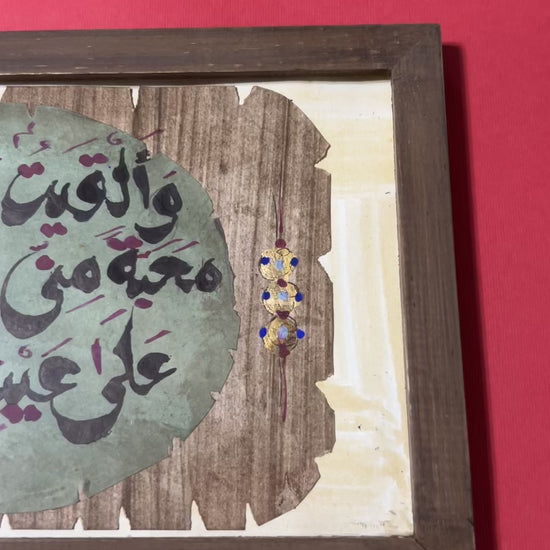 وَأَلْقَيْتُ
مَحَبَّةً مِنِّي
عَلَى